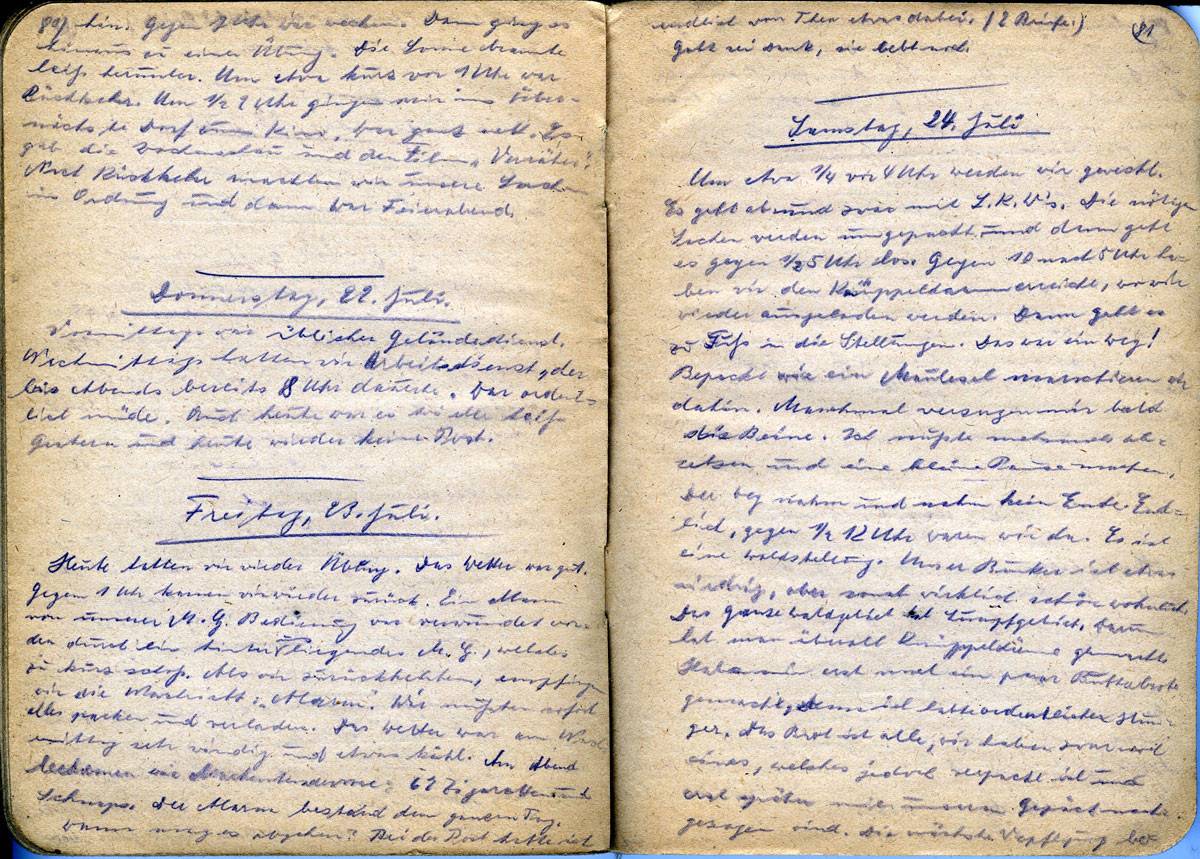 80) hin. Gegen 7 Uhr war wecken. Dann ging es
hinaus zu einer Übung. Die Sonne brannte
heiß herunter. Um etwa kurz vor 1 Uhr war
Rückkehr. Um 1/2 2 Uhr gingen wir ins Über-
nächste Dorf zum Kino. War ganz nett. Es
gab die Wochenschau und den Film „Verräter“.
Nach Rückkehr machten wir unsere Sachen
in Ordnung und dann war Feierabend.
Donnerstag, 22. Juli.
Vormittags war üblicher Geländedienst.
Nachmittags hatten wir Arbeitsdienst, der
bis Abends bereits 8 Uhr dauerte. War ordent-
lich müde. Auch heute war es wieder heiß
gestern und heute wieder keine Post.
Freitag, 23. Juli.
Heute hatten wir wieder Übung. Das Wetter war gut.
Gegen 1 Uhr kamen wir wieder zurück. Ein Mann
von unserer M.G. Bedienung war verwundet wor-
den durch ein hinten liegendes M.G., welches
zu kurz schoß. Als wir zurückkehrten, empfingen
wir die Nachricht: „Alarm“. Wir mußten sofort
alles packen und verladen. Das Wetter war am Nach-
mittag sehr windig und etwas kühl. Am Abend
bekamen wir 62 Zigaretten und
Schnaps. Der Alarm bestand den ganzen Tag.
Wann mag es abgehen? Bei der Post hatte ich
endlich von Thea etwas dabei. (2 Briefe.) 81
Gott sei Dank, sie lebt noch.
Samstag, 24. Juli
Um etwa 1/4 vor 4 Uhr werden wir geweckt.
Es geht ab und zwar mit L.K.W's. Die nötigen
Sachen werden umgepackt und dann geht
es gegen 1/2 5 Uhr los. Gegen 10 nach 5 Uhr ha-
ben wir den Knüppeldamm erreicht, wo wir
wieder ausgeladen werden. Dann geht es
zu Fuß in die Stellungen. Das war ein Weg!
Bepackt wie ein Maulesel marschieren wir
dahin. Manchmal versagen mir bald
die Beine. Ich mußte mehrmals ab-
setzen und eine kleine Pause machen.
Der Weg nahm und nahm kein Ende. End-
lich, gegen 1/2 12 Uhr waren wir da. Es ist
eine Waldstellung. Unser Bunker ist etwas
niedrig, aber sonst wirklich schön wohnlich.
Das ganze Waldgebiet ist Sumpfgebiet. Darum
hat man überall Knüppeldämme gemacht.
Habe mir erst mal ein paar Butterbrote
gemacht, denn ich hatte ordentlichen Hun-
ger. Das Brot ist alle, wir haben zwar noch
eines, welches jedoch verpackt ist und
erst später mit unserem Gepäck nach-
gezogen wird. Die nächste Verpflegung be-